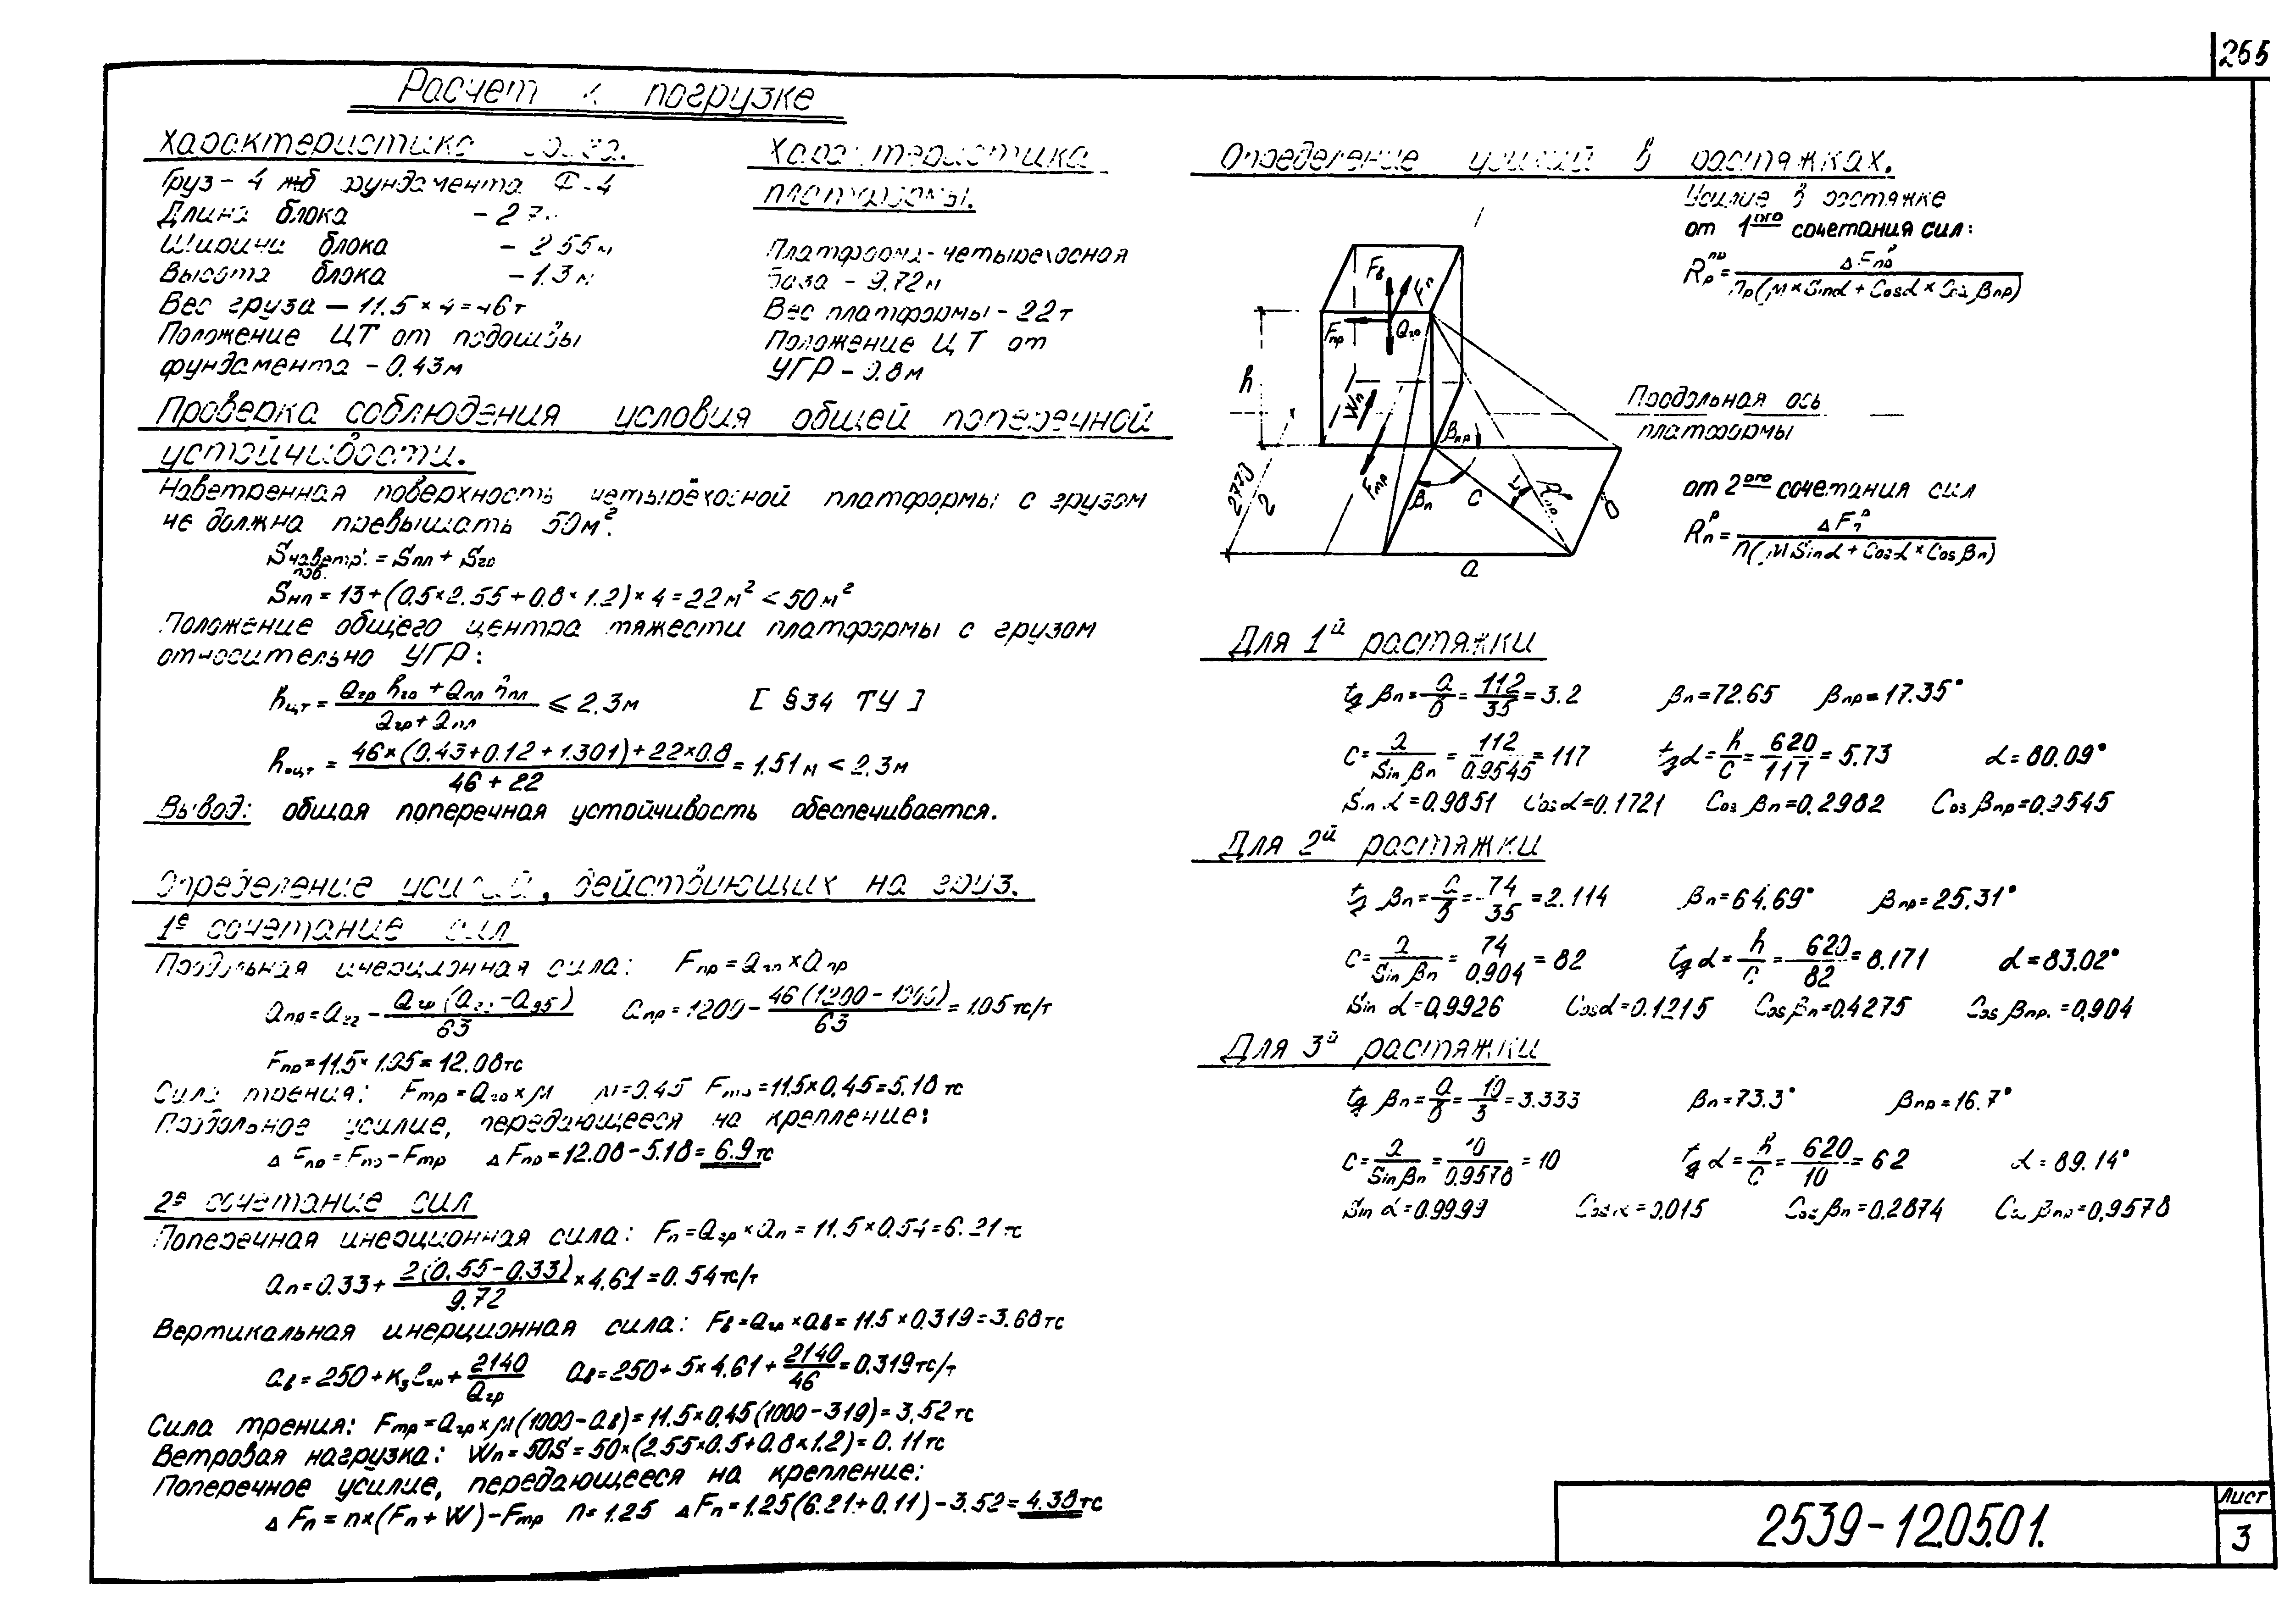 265
Расчет к погрузке
Характеристика груза.
Груз - 4 жб фундамента Ф-4
Длина блока - 2.7
Ширина блока - 2.55м
Высота блока - 1.3м
Вес груза — 11.5 × 4 = 46т
Положение ЦТ от подошвы
фундамента - 0.43м
Характеристика
платформы.
Платформа - четырехосная
База - 9.72м
Вес платформы - 22т
Положение ЦТ от
УГР - 0.8м
Проверка соблюдения условия общей поперечной
устойчивости.
Наветренная поверхность четырёхосной платформы с грузом
не должна превышать 50м².
Sнаветр. пов. = Sпл + Sго
Sнп = 13 + (0.5×2.55 + 0.8×1.2) × 4 = 22м² < 50м²
Положение общего центра тяжести платформы с грузом
относительно УГР:
hцт = (Qгр hго + Qпл hпл) / (Qгр + Qпл) ≤ 2.3м [ §34 ТУ ]
hоцт = (46×(0.43+0.12+1.301)+22×0.8) / (46+22) = 1.51м < 2.3м
Вывод: общая поперечная устойчивость обеспечивается.
Определение усилий, действующих на груз.
1е сочетание сил
Продольная инерционная сила: Fпр = Qгр × aпр
aпр = a22 - Qгр (a22 - a95) / 63 aпр = 1200 - 46 (1200 - 1000) / 63 = 1.05 тс/т
Fпр = 11.5 × 1.05 = 12.08тс
Сила трения: Fтр = Qго × μ μ = 0.45 Fтр = 11.5×0.45 = 5.18 тс
Продольное усилие, передающееся на крепление:
Δ Fпр = Fпр - Fтр Δ Fпр = 12.08 - 5.18 = 6.9 тс
2е сочетание сил
Поперечная инерционная сила: Fп = Qгр × aп = 11.5 × 0.54 = 6.21 тс
aп = 0.33 + 2(0.55 - 0.33) / 9.72 × 4.61 = 0.54 тс/т
Вертикальная инерционная сила: Fв = Qгр × aв = 11.5 × 0.319 = 3.68 тс
aв = 250 + kз ℓгр + 2140 / Qгр aв = 250 + 5 × 4.61 + 2140 / 46 = 0.319тс/т
Сила трения: Fтр = Qгр × μ (1000 - aв) = 11.5 × 0.45 (1000 - 319) = 3.52 тс
Ветровая нагрузка: Wп = 50S = 50×(2.55×0.5+0.8×1.2) = 0.11тс
Поперечное усилие, передающееся на крепление:
Δ Fп = n×(Fп + W) - Fтр n = 1.25 Δ Fп = 1.25(6.21+0.11) - 3.52 = 4.38 тс
Определение усилий в растяжках.
Усилие в растяжке
от 1ого сочетания сил:
Rрпр = Δ Fпрр / nр(μ × Sinα + Cosα × Cos βпр)
Fв
Fпр
Qго
h
Wп
Fтр
βпр
βп
c
α
Rпрр
2770
2
a
Продольная ось
платформы
от 2ого сочетания сил
Rпр = Δ Fпр / n(μ Sinα + Cosα × Cos βп)
Для 1й растяжки
tg βп = a/в = 112/35 = 3.2 βп = 72.65 βпр = 17.35°
c = a / Sin βп = 112 / 0.9545 = 117 tg α = h/c = 620/117 = 5.73 α = 80.09°
Sin α = 0.9851 Cos α = 0.1721 Cos βп = 0.2982 Cos βпр = 0.9545
Для 2й растяжки
tg βп = a/в = 74/35 = 2.114 βп = 64.69° βпр = 25.31°
c = a / Sin βп = 74 / 0.904 = 82 tg α = h/c = 620/82 = 8.171 α = 83.02°
Sin α = 0.9926 Cosα = 0.1215 Cos βп = 0.4275 Cos βпр. = 0.904
Для 3й растяжки
tg βп = a/в = 10/3 = 3.333 βп = 73.3° βпр = 16.7°
c = a / Sin βп = 10 / 0.9578 = 10 tg α = h/c = 620/10 = 62 α = 89.14°
Sin α = 0.9999 Cos α = 0.015 Cos βп = 0.2874 Cos βпр = 0.9578
2539-12.05.01.
Лист
3